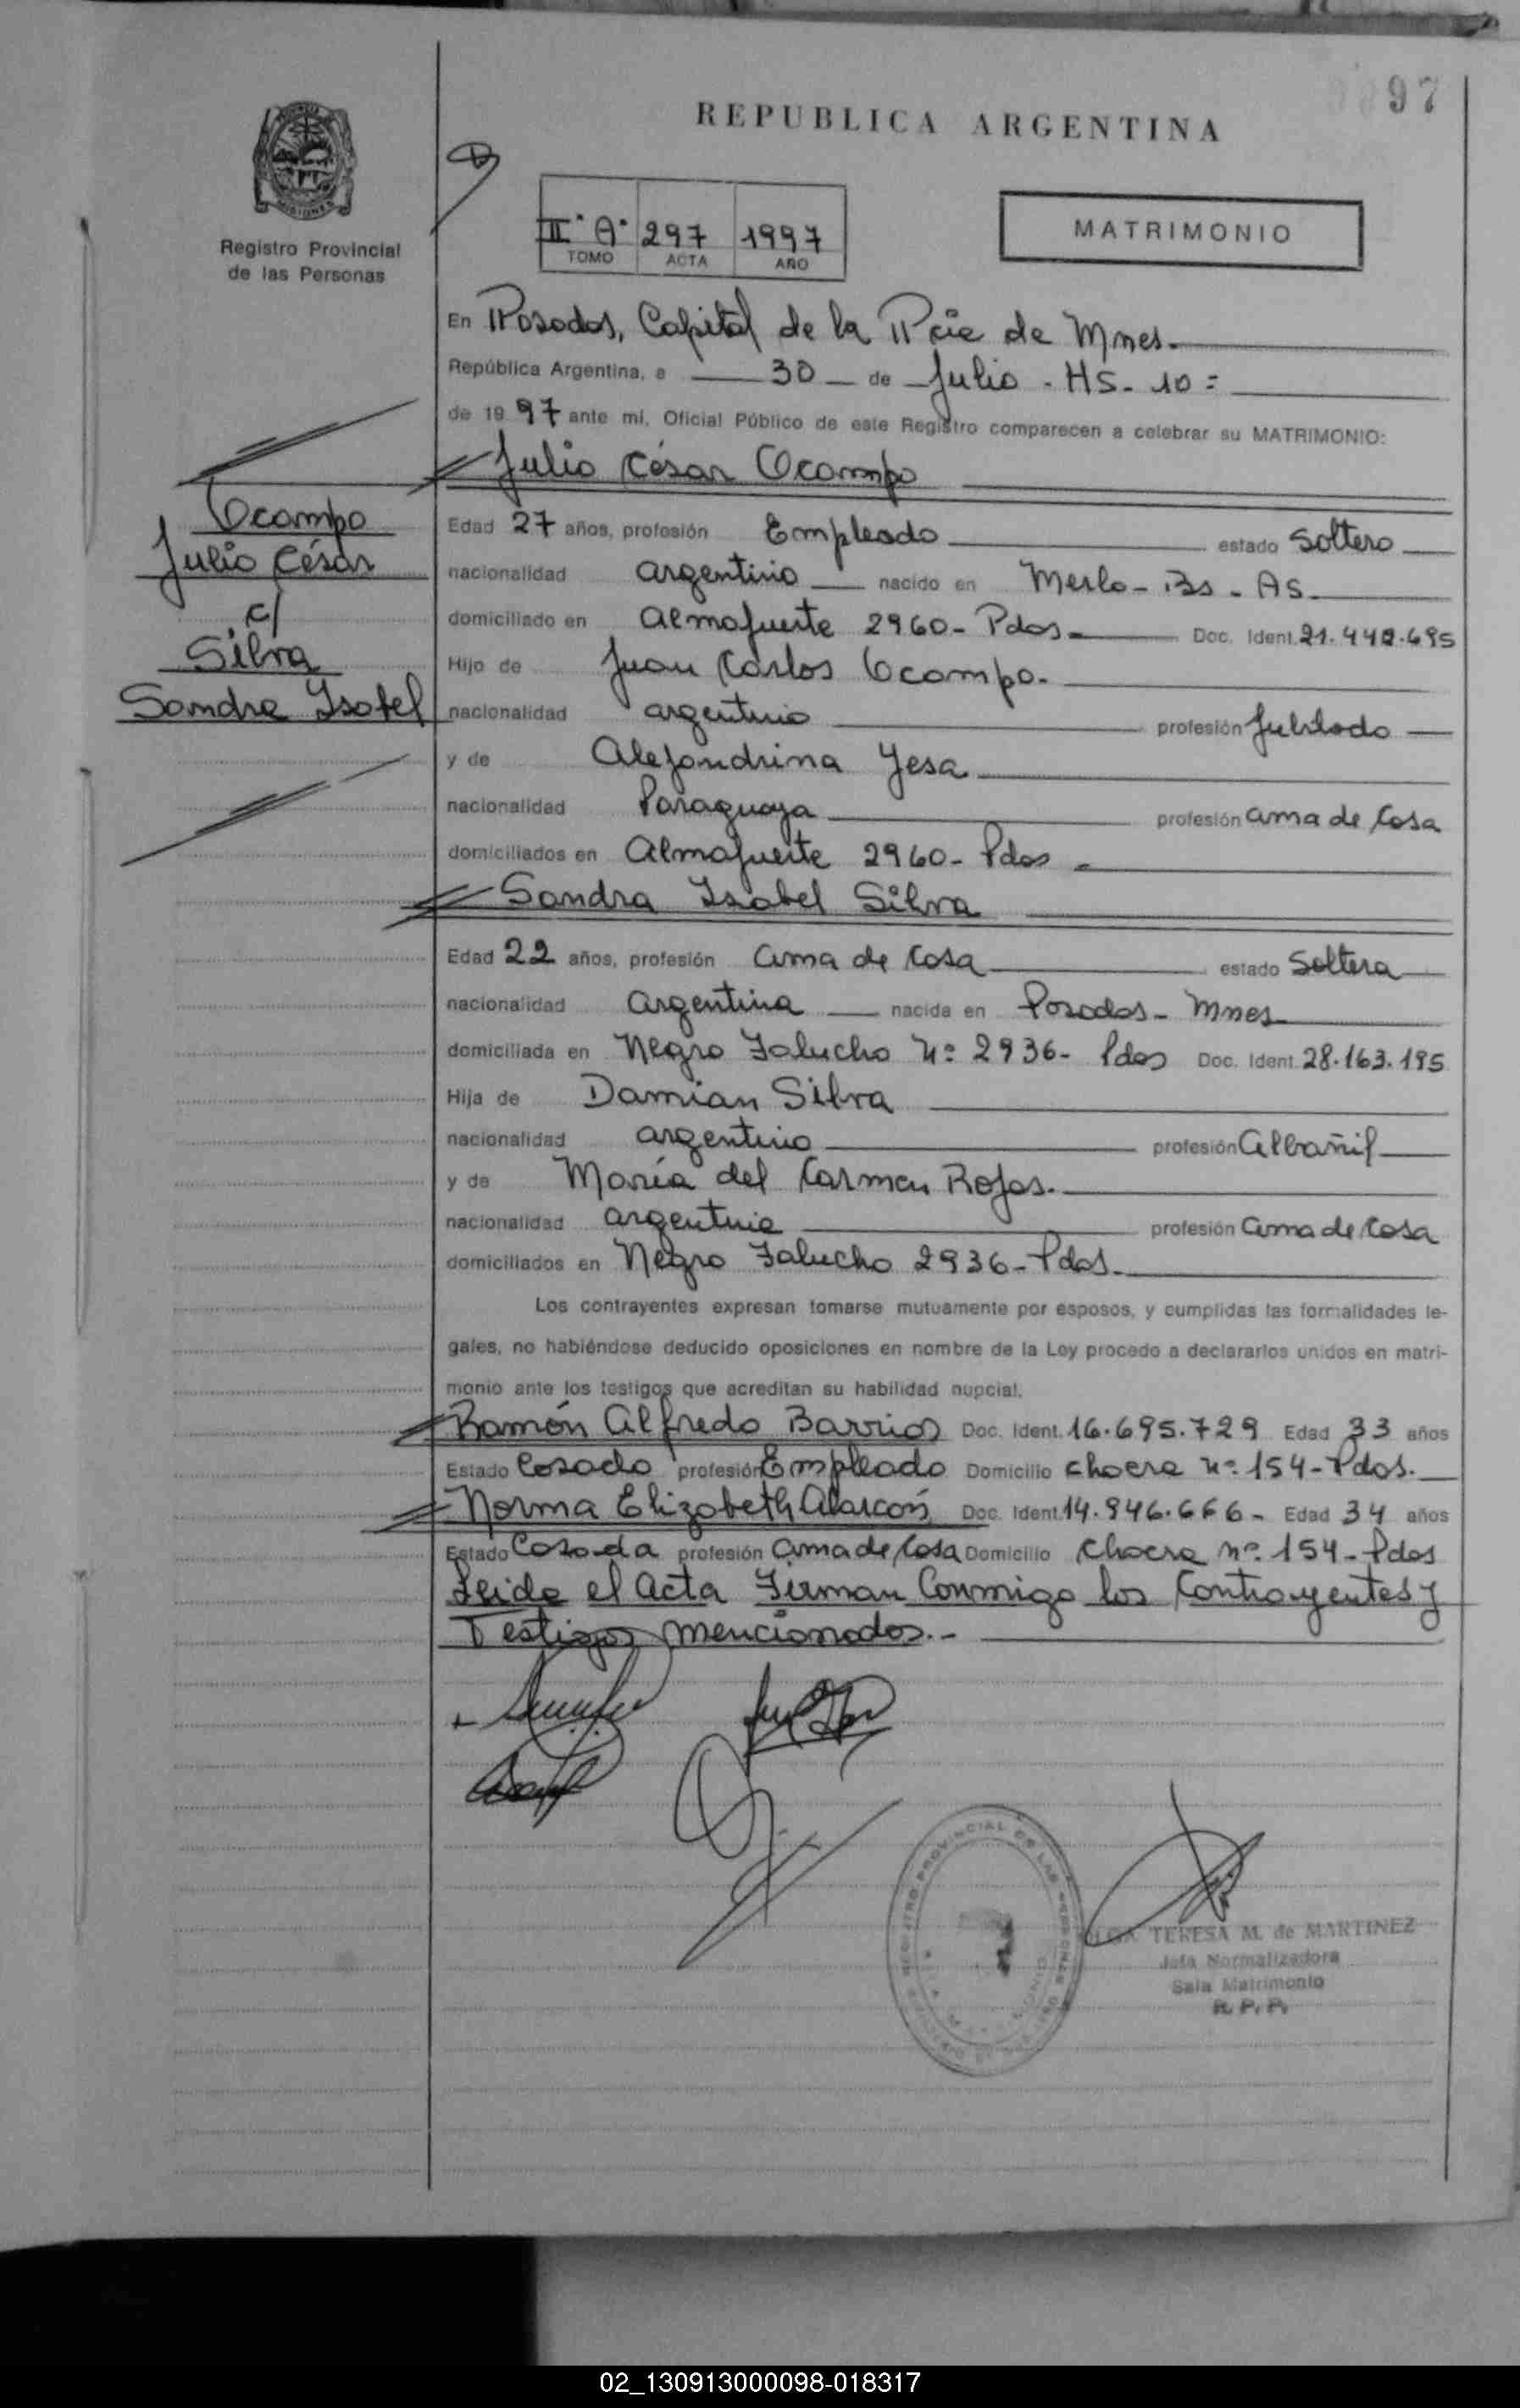 97
REPUBLICA ARGENTINA
MISIONES
Registro Provincial
de las Personas
II° A° 297 1997
TOMO ACTA AÑO
MATRIMONIO
En Posadas, Capital de la Pcia de Mnes.
República Argentina, a 30 de Julio - HS - 10 =
de 1997 ante mi, Oficial Público de este Registro comparecen a celebrar su MATRIMONIO:
Julio César Ocampo
Ocampo
Julio César
c/
Silva
Sandra Isabel
Edad 27 años, profesión Empleado estado Soltero
nacionalidad argentino nacido en Merlo - Bs - AS.
domiciliado en Almafuerte 2960 - Pdas - Doc. Ident.
Hijo de Juan Carlos Ocampo.
nacionalidad argentino profesión Jubilado
y de Alejandrina Yesa
nacionalidad Paraguaya profesión ama de Casa
domiciliados en Almafuerte 2960 - Pdas -
Sandra Isabel Silva
Edad 22 años, profesión ama de Casa estado Soltera
nacionalidad argentina nacida en Posadas - Mnes
domiciliada en Negro Falucho N° 2936 - Pdas Doc. Ident. 28.163.195
Hija de Damian Silva
nacionalidad argentino profesión albañil
y de María del Carmen Rojas.
nacionalidad argentina profesión ama de Casa
domiciliados en Negro Falucho 2936 - Pdas.
Los contrayentes expresan tomarse mutuamente por esposos, y cumplidas las formalidades le-
gales, no habiéndose deducido oposiciones en nombre de la Ley procedo a declararlos unidos en matri-
monio ante los testigos que acreditan su habilidad nupcial.
Ramón Alfredo Barrios Doc. Ident. 16.695.729 Edad 33 años
Estado Casado profesión Empleado Domicilio chacra n° 154 - Pdas.
Norma Elizabeth Alarcón Doc. Ident. 14.946.666 - Edad 34 años
Estado Casada profesión ama de Casa Domicilio Chacra n° 154 - Pdas
Leida el Acta Firman Conmigo los Contrayentes y
Testigos mencionados. -
REGISTRO PROVINCIAL DE LAS PERSONAS
TERESA M. de MARTINEZ
Jefa Normalizadora
Sala Matrimonio
R. P. P.
02_130913000098-018317